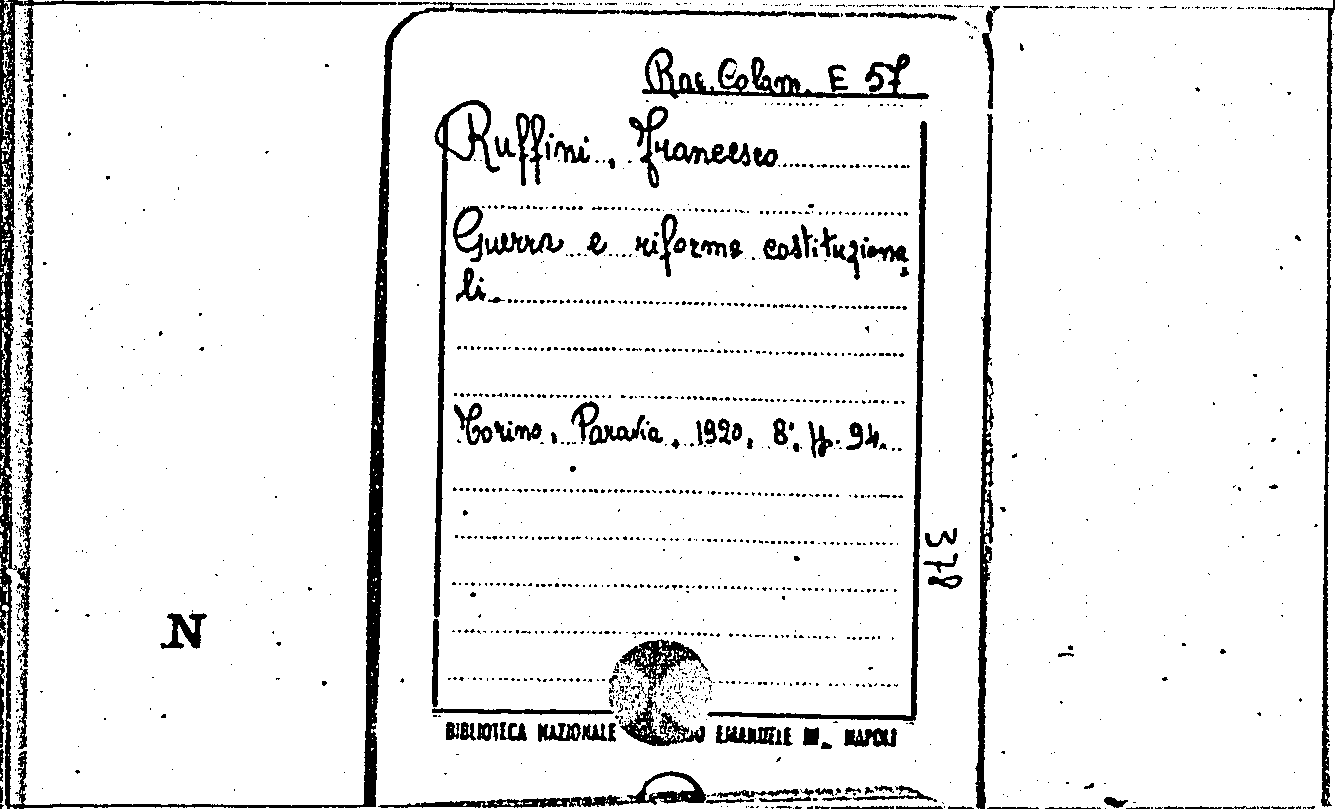 Rac. Colam. E 57
Ruffini, Francesco
Guerra e riforme costituziona
li.
Torino, Paravia, 1920, 8°, pp. 94.
378
N
BIBLIOTECA NAZIONALE EMANUELE III. NAPOLI